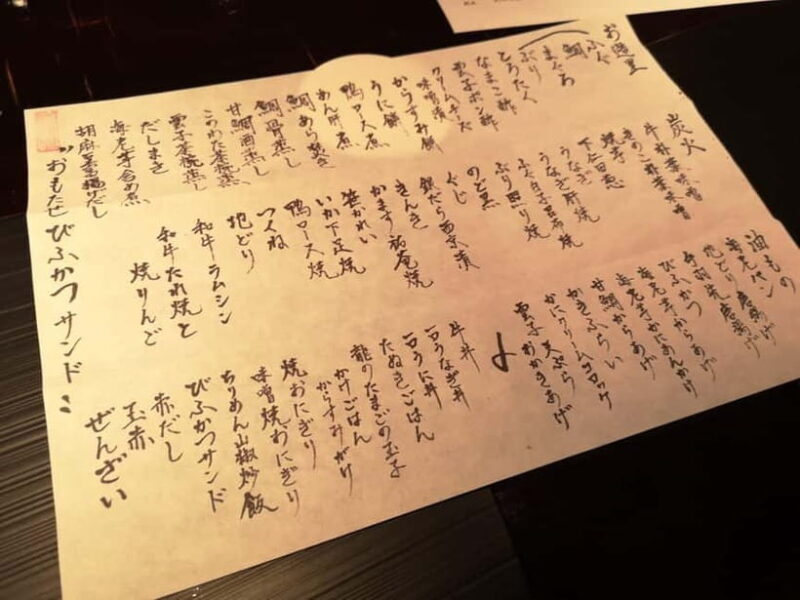 お造里
ふぐ
鯛
まぐろ
ぶり
とろたく
なまこ酢
雲子ポン酢
クリームチーズ
味噌漬
からすみ餅
うに餅
鴨ロース煮
あん肝煮
鯛あら焚き
鯛骨蒸し
甘鯛酒蒸し
このわた茶碗蒸し
雲子茶碗蒸し
だしまき
海老芋含め煮
胡麻豆腐揚げだし
"おもたせびふかつサンド"
炭火
牛朴葉味噌
きのこ朴葉味噌
焼芋
下仁田葱
うなぎ
うなぎ肝焼
ふぐ白子
ぶり照り焼
のど黒
ぐじ
銀だら西京漬
きんき
かます祐庵焼
笹かれい
いか下足焼
鴨ロース焼
つくね
地どり
和牛ラムシン
和牛たれ焼と
焼りんご
油もの
海老パン
地どり唐揚げ
手羽先唐揚げ
びふかつ
海老芋からあげ
海老芋かにあんかけ
甘鯛からあげ
かきふらい
かにクリームコロッケ
天ぷら
雲子おかきあげ
牛丼
一口うなぎ丼
一口うに丼
たぬきごはん
龍のたまごの玉子
かけごはん
からすみがけ
焼おにぎり
味噌焼おにぎり
ちりめん山椒炒飯
びふかつサンド
赤だし
玉赤
ぜんざい